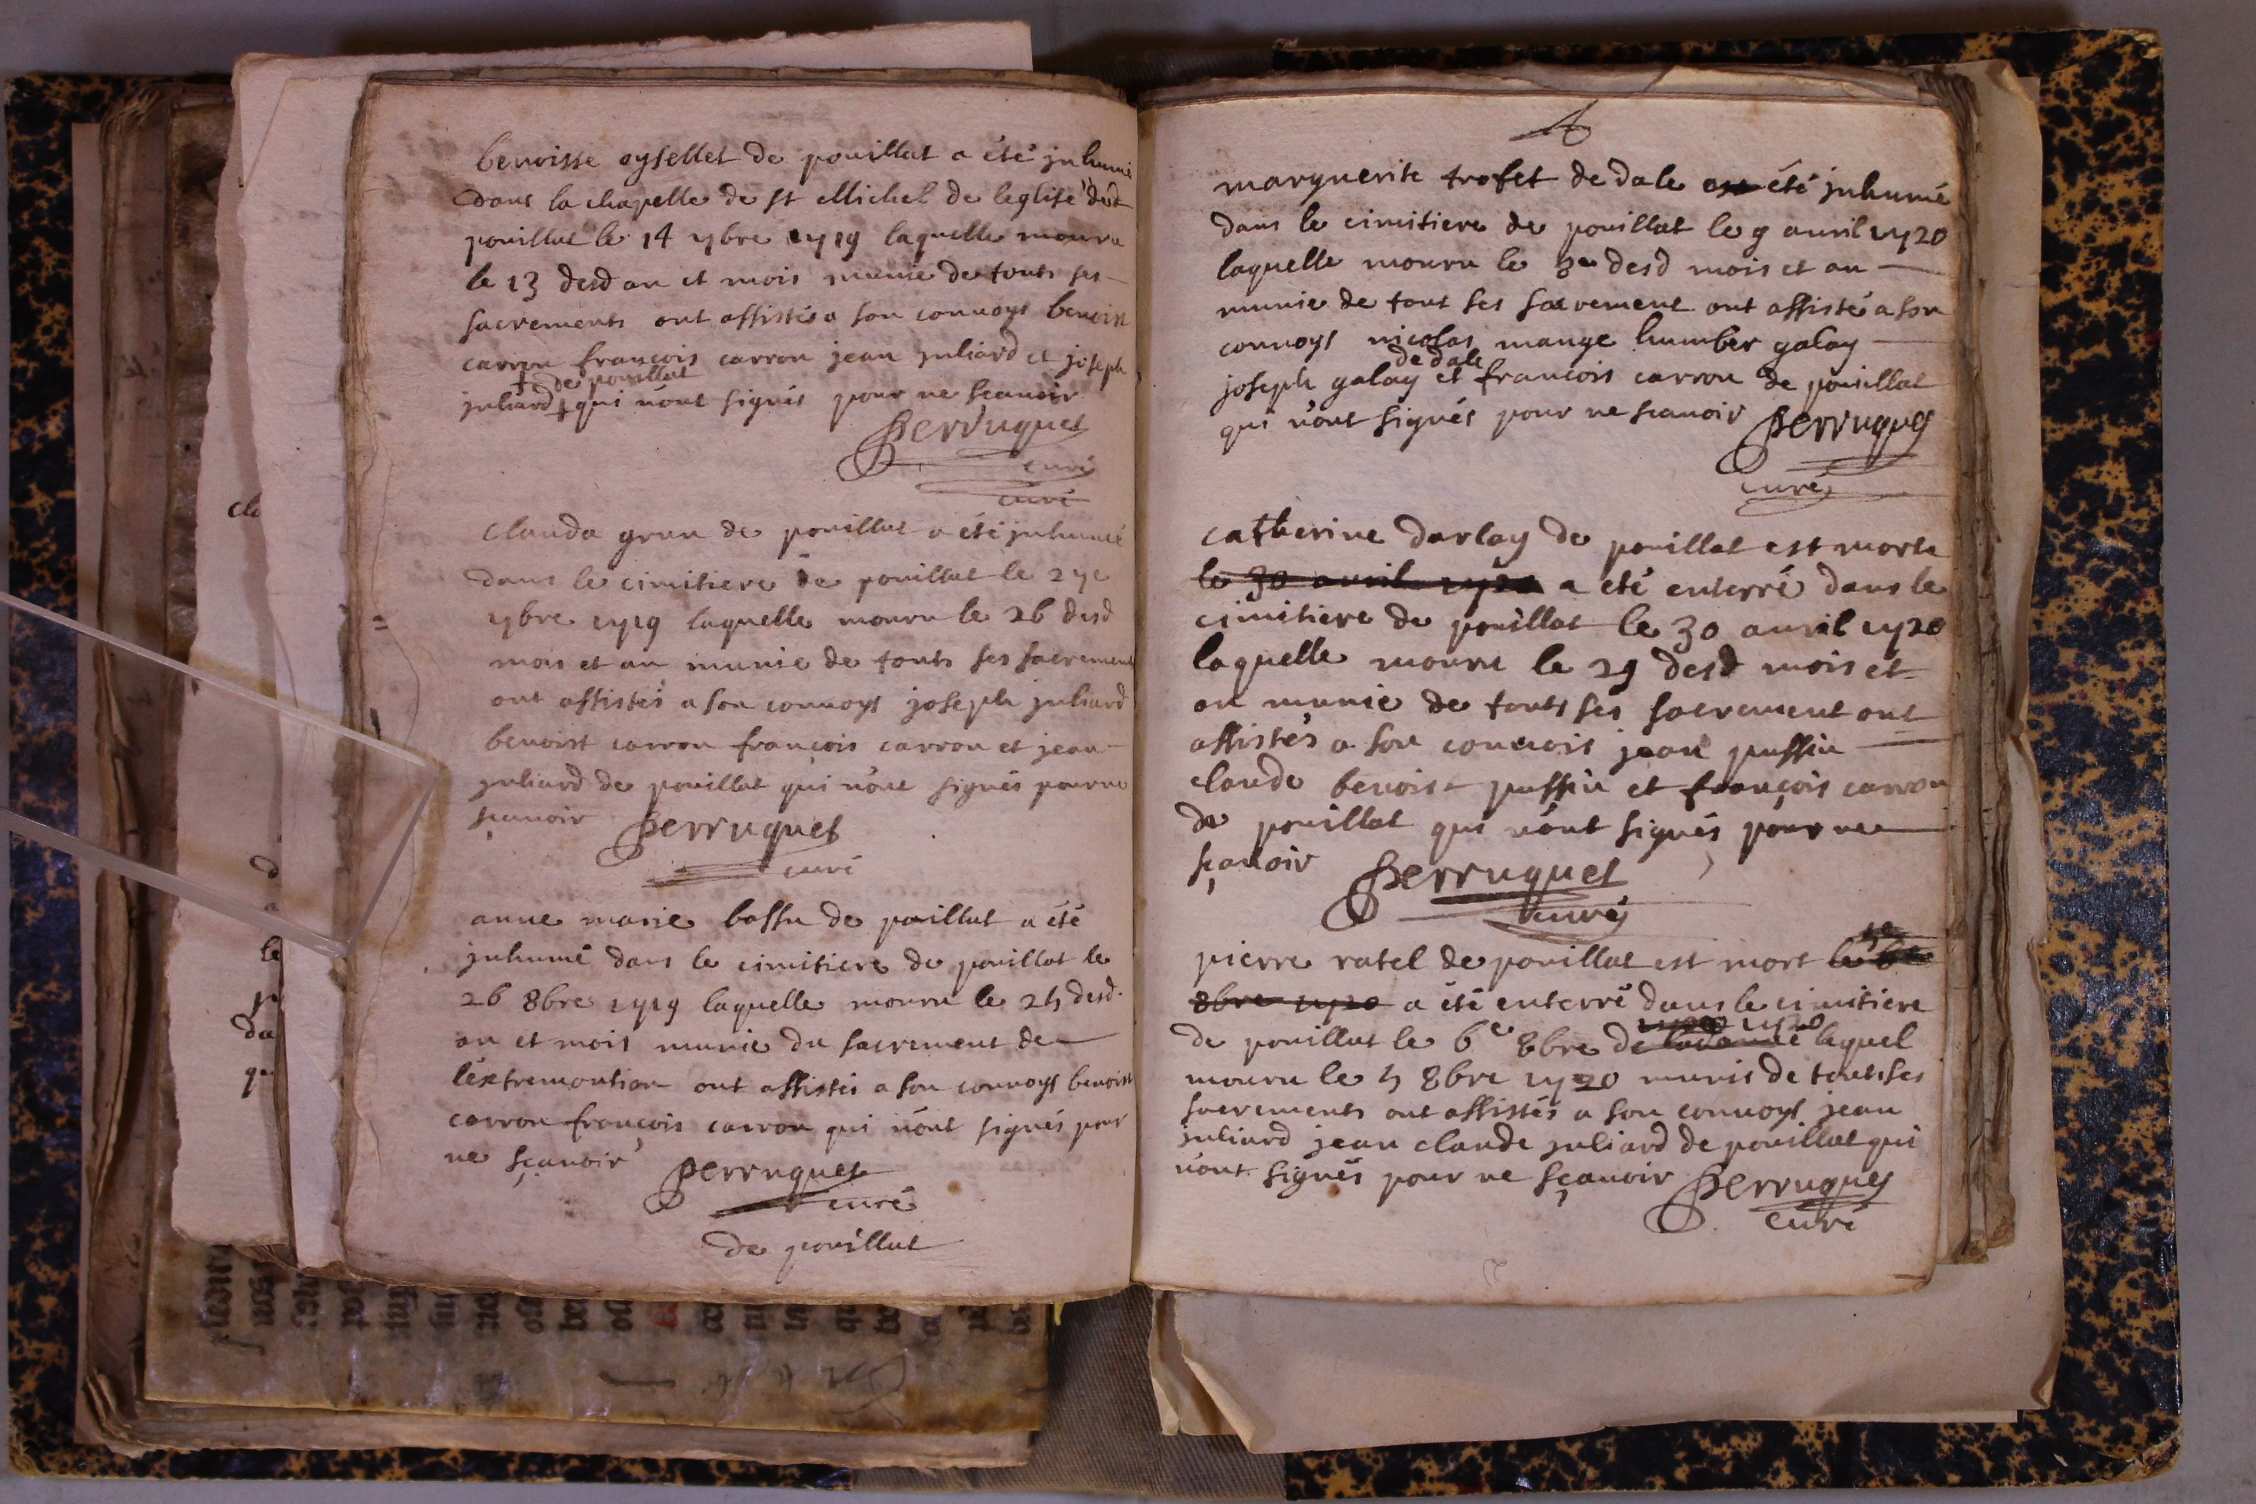 benoisse oysellet de pouillat a été jnhumé
dans la chapelle de st Michel de leglise dud
pouillat le 14 7bre 1719 laquelle mouru
le 13 desd an et mois munie de touts ses
sacrements ont assistés a son convoys benoist
carron françois carron jean juliard et joseph
+ de pouillat
juliard + qui n'ont signés pour ne scavoir
Perruquet
curé
curé
clauda grun de pouillat a été jnhumé
dans le cimitiere de pouillat le 27e
7bre 1719 laquelle mouru le 26 desd
mois et an munie de touts ses sacrement
ont assistés a son convoys joseph juliard
benoist carron françois carron et jean
juliard de pouillat qui n'ont signés pour ne
sçavoir Perruquet
curé
anne marie bossu de pouillat a été
jnhumé dans le cimitiere de pouillat le
26 8bre 1719 laquelle mouru le 25 desd.
an et mois munie du sacrement de
l'extremontion ont assistés a son convoys benoist
carron françois carron qui n'ont signés pour
ne sçavoir Perruquet
curé
de pouillat
marguerite trofet de dale été jnhumé
dans le cimitiere de pouillat le 9 avril 1720
laquelle mouru le 8e desd mois et an
munie de tout ses sacrement ont assistés a son
convoys nicolas mange humber galay
de dale
joseph galay et francois carron de pouillat
qui n'ont signés pour ne scavoir Perruquet
curé
catherine darlay de pouillat est morte
le 30 avril 1720 a été enterré dans le
cimitiere de pouillat le 30 avril 1720
laquelle mouru le 29 desd mois et
an munie de touts ses sacrement ont
assistés a son convois jean pussin
claude benoist pussin et françois carron
de pouillat qui n'ont signés pour ne
sçavoir Perruquet
curé
pierre ratel de pouillat est mort le 6e
8bre 1720 a été enterré dans le cimitiere
1720
de pouillat le 6e 8bre de lequel
mouru le 5 8bre 1720 munis de touts ses
sacrements ont assistés a son convoys jean
juliard jean claude juliard de pouillat qui
n'ont signés pour ne sçavoir Perruquet
curé